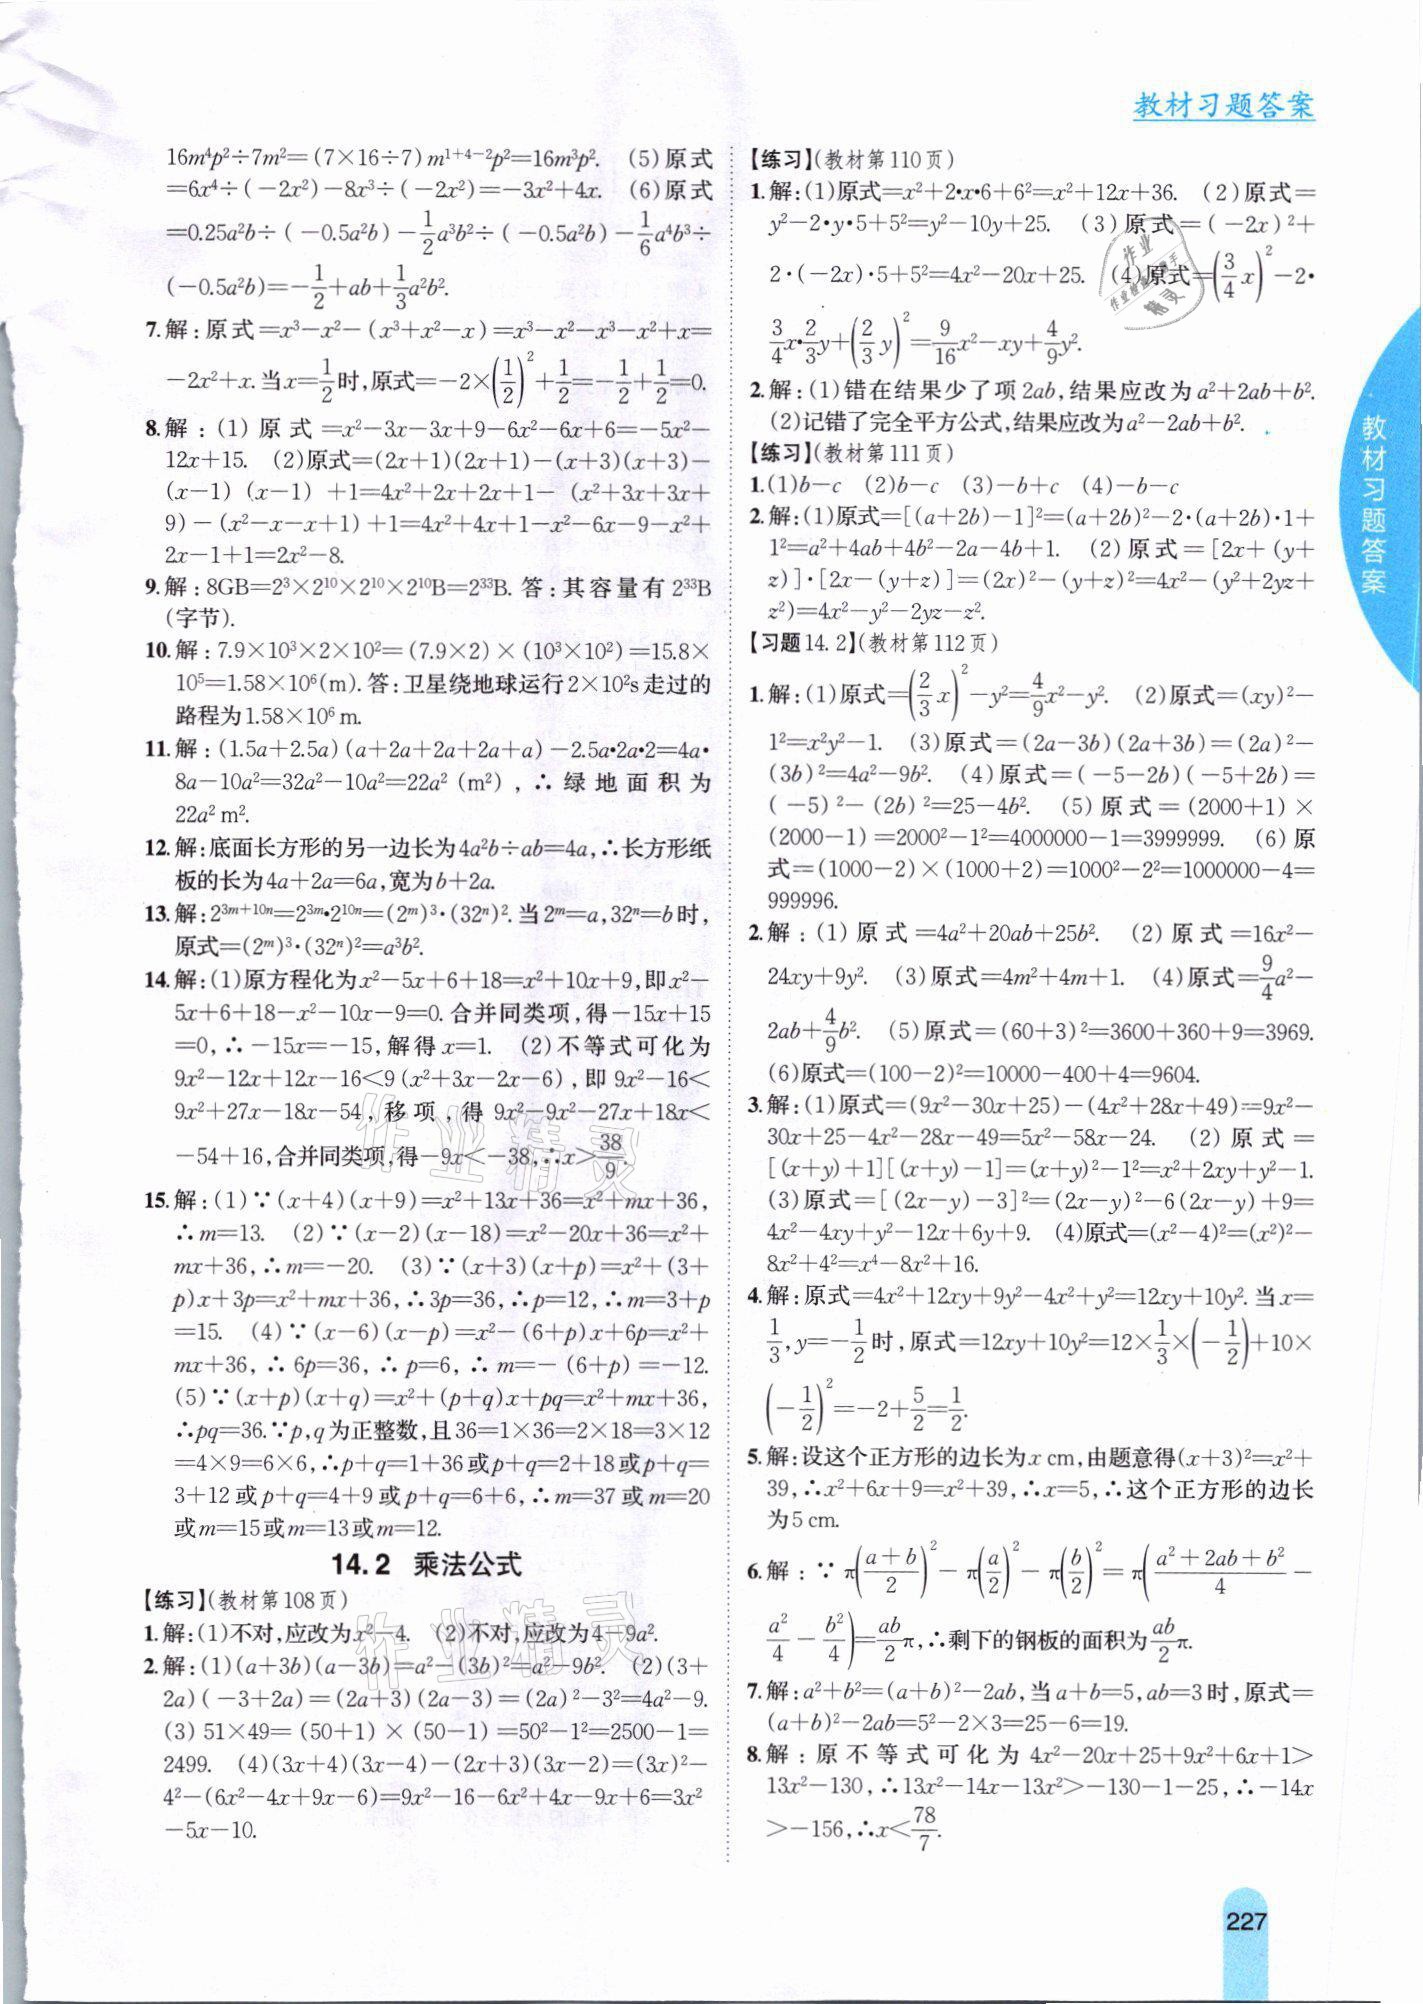 教材习题答案
16m⁴p²÷7m²=(7×16÷7)m¹⁺⁴⁻²p²=16m³p². (5)原式
=6x⁴÷(-2x²)-8x³÷(-2x²)=-3x²+4x. (6)原式
=0.25a²b÷(-0.5a²b)-1/2a³b²÷(-0.5a²b)-1/6a⁴b³÷
(-0.5a²b)=-1/2+ab+1/3a²b².
7.解:原式=x³-x²-(x³+x²-x)=x³-x²-x³-x²+x=
-2x²+x.当x=1/2时,原式=-2×(1/2)²+1/2=-1/2+1/2=0.
8.解:(1)原式=x²-3x-3x+9-6x²-6x+6=-5x²-
12x+15. (2)原式=(2x+1)(2x+1)-(x+3)(x+3)-
(x-1)(x-1)+1=4x²+2x+2x+1-(x²+3x+3x+
9)-(x²-x-x+1)+1=4x²+4x+1-x²-6x-9-x²+
2x-1+1=2x²-8.
9.解:8GB=2³×2¹⁰×2¹⁰×2¹⁰B=2³³B.答:其容量有2³³B
(字节).
10.解:7.9×10³×2×10²=(7.9×2)×(10³×10²)=15.8×
10⁵=1.58×10⁶(m).答:卫星绕地球运行2×10²s走过的
路程为1.58×10⁶ m.
11.解:(1.5a+2.5a)(a+2a+2a+2a+a)-2.5a•2a•2=4a•
8a-10a²=32a²-10a²=22a²(m²),∴绿地面积为
22a² m².
12.解:底面长方形的另一边长为4a²b÷ab=4a,∴长方形纸
板的长为4a+2a=6a,宽为b+2a.
13.解:2³ᵐ⁺¹⁰ⁿ=2³ᵐ•2¹⁰ⁿ=(2ᵐ)³·(32ⁿ)².当2ᵐ=a,32ⁿ=b时,
原式=(2ᵐ)³·(32ⁿ)²=a³b².
14.解:(1)原方程化为x²-5x+6+18=x²+10x+9,即x²-
5x+6+18-x²-10x-9=0.合并同类项,得-15x+15
=0,∴-15x=-15,解得x=1. (2)不等式可化为
9x²-12x+12x-16<9(x²+3x-2x-6),即9x²-16<
9x²+27x-18x-54,移项,得9x²-9x²-27x+18x<
-54+16,合并同类项,得-9x<-38,∴x>38/9.
15.解:(1)∵(x+4)(x+9)=x²+13x+36=x²+mx+36,
∴m=13. (2)∵(x-2)(x-18)=x²-20x+36=x²+
mx+36,∴m=-20. (3)∵(x+3)(x+p)=x²+(3+
p)x+3p=x²+mx+36,∴3p=36,∴p=12,∴m=3+p
=15. (4)∵(x-6)(x-p)=x²-(6+p)x+6p=x²+
mx+36,∴6p=36,∴p=6,∴m=-(6+p)=-12.
(5)∵(x+p)(x+q)=x²+(p+q)x+pq=x²+mx+36,
∴pq=36.∵p,q为正整数,且36=1×36=2×18=3×12
=4×9=6×6,∴p+q=1+36或p+q=2+18或p+q=
3+12或p+q=4+9或p+q=6+6,∴m=37或m=20
或m=15或m=13或m=12.
14.2 乘法公式
【练习】(教材第108页)
1.解:(1)不对,应改为x²-4. (2)不对,应改为4-9a².
2.解:(1)(a+3b)(a-3b)=a²-(3b)²=a²-9b². (2)(3+
2a)(-3+2a)=(2a+3)(2a-3)=(2a)²-3²=4a²-9.
(3)51×49=(50+1)×(50-1)=50²-1²=2500-1=
2499. (4)(3x+4)(3x-4)-(2x+3)(3x-2)=(3x)²-
4²-(6x²-4x+9x-6)=9x²-16-6x²+4x-9x+6=3x²
-5x-10.
【练习】(教材第110页)
1.解:(1)原式=x²+2•x•6+6²=x²+12x+36. (2)原式=
y²-2•y•5+5²=y²-10y+25. (3)原式=(-2x)²+
2·(-2x)·5+5²=4x²-20x+25. (4)原式=(3/4x)²-2•
3/4x•2/3y+(2/3y)²=9/16x²-xy+4/9y².
2.解:(1)错在结果少了项2ab,结果应改为a²+2ab+b².
(2)记错了完全平方公式,结果应改为a²-2ab+b².
【练习】(教材第111页)
1.(1)b-c (2)b-c (3)-b+c (4)-b-c
2.解:(1)原式=[(a+2b)-1]²=(a+2b)²-2·(a+2b)·1+
1²=a²+4ab+4b²-2a-4b+1. (2)原式=[2x+(y+
z)]·[2x-(y+z)]=(2x)²-(y+z)²=4x²-(y²+2yz+
z²)=4x²-y²-2yz-z².
【习题14.2】(教材第112页)
1.解:(1)原式=(2/3x)²-y²=4/9x²-y². (2)原式=(xy)²-
1²=x²y²-1. (3)原式=(2a-3b)(2a+3b)=(2a)²-
(3b)²=4a²-9b². (4)原式=(-5-2b)(-5+2b)=
(-5)²-(2b)²=25-4b². (5)原式=(2000+1)×
(2000-1)=2000²-1²=4000000-1=3999999. (6)原
式=(1000-2)×(1000+2)=1000²-2²=1000000-4=
999996.
2.解:(1)原式=4a²+20ab+25b². (2)原式=16x²-
24xy+9y². (3)原式=4m²+4m+1. (4)原式=9/4a²-
2ab+4/9b². (5)原式=(60+3)²=3600+360+9=3969.
(6)原式=(100-2)²=10000-400+4=9604.
3.解:(1)原式=(9x²-30x+25)-(4x²+28x+49)=9x²-
30x+25-4x²-28x-49=5x²-58x-24. (2)原式=
[(x+y)+1][(x+y)-1]=(x+y)²-1²=x²+2xy+y²-1.
(3)原式=[(2x-y)-3]²=(2x-y)²-6(2x-y)+9=
4x²-4xy+y²-12x+6y+9. (4)原式=(x²-4)²=(x²)²-
8x²+4²=x⁴-8x²+16.
4.解:原式=4x²+12xy+9y²-4x²+y²=12xy+10y².当x=
1/3,y=-1/2时,原式=12xy+10y²=12×1/3×(-1/2)+10×
(-1/2)²=-2+5/2=1/2.
5.解:设这个正方形的边长为x cm,由题意得(x+3)²=x²+
39,∴x²+6x+9=x²+39,∴x=5,∴这个正方形的边长
为5 cm.
6.解:∵π((a+b)/2)²-π(a/2)²-π(b/2)²=π((a²+2ab+b²)/4-
a²/4-b²/4)=ab/2π,∴剩下的钢板的面积为ab/2π.
7.解:a²+b²=(a+b)²-2ab,当a+b=5,ab=3时,原式=
(a+b)²-2ab=5²-2×3=25-6=19.
8.解:原不等式可化为4x²-20x+25+9x²+6x+1>
13x²-130,∴13x²-14x-13x²>-130-1-25,∴-14x
>-156,∴x<78/7.
教材习题答案
227
作业精灵
作业精灵